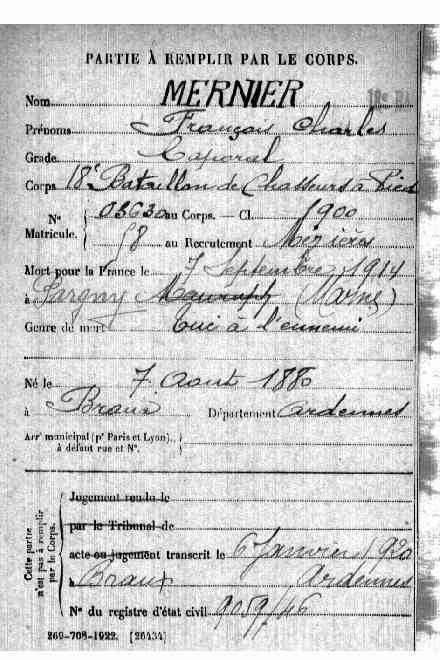 PARTIE À REMPLIR PAR LE CORPS.
Nom MERNIER
Prénoms François Charles
Grade Caporal
Corps 18e Bataillon de Chasseurs à Pied
N° Matricule. { 03630 au Corps. — Cl. 1900
58 au Recrutement Mézières
Mort pour la France le 7 Septembre 1914
à Pargny Maurupt (Marne)
Genre de mort tué à l'ennemi
Né le 7 Août 1880
à Braux Département Ardennes
Arrt municipal (pr Paris et Lyon), à défaut rue et N°. }
Cette partie n'est pas à remplir par le Corps.
Jugement rendu le
par le Tribunal de
acte ou jugement transcrit le 6 Janvier 1920
à Braux Ardennes
N° du registre d'état civil 9059/46
269-708-1922. [26434]